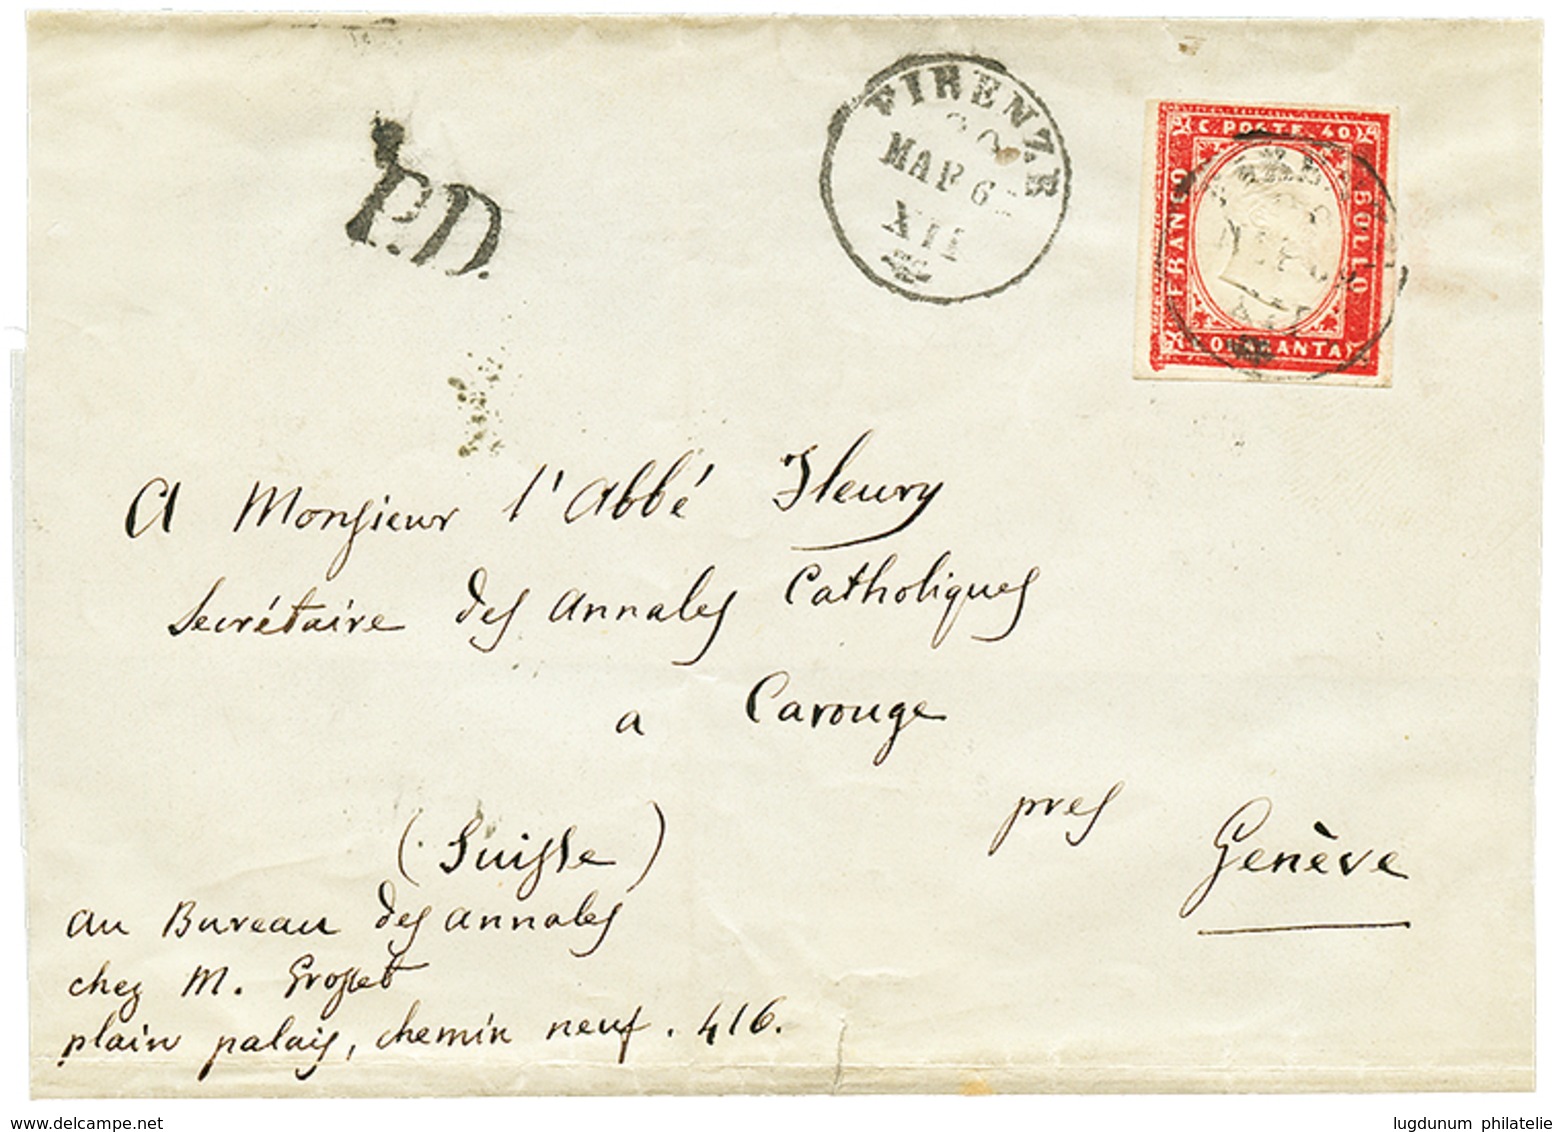 P.D.
FIRENZE
MAR 6
XII
C. POSTE 40
FRANCO
BOLLO
C. QUARANTA
A Monsieur l'Abbé Fleury
Secrétaire des Annales Catholiques
a Carouge
pres Genève
(Suisse)
au Bureau des Annales
chez M. Grosset
plain palais, chemin neuf. 416.
www.delcampe.net
lugdunum philatelie